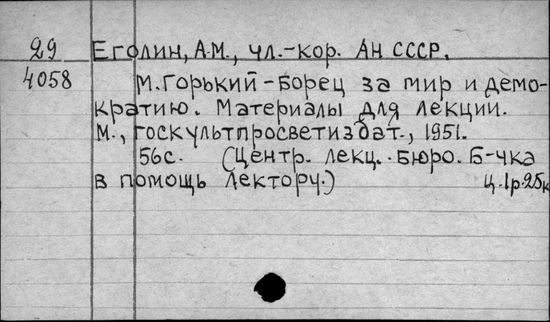 29 Еголин, А.М., чл.-кор. Ан СССР.
4058 М.Горький-борец за мир и демо-
кратию. Материалы для лекции.
М., госкультпросветиздат., 1951.
56с. (Центр. лекц. бюро. Б-чка
в помощь лектору.) ц.1р.25к